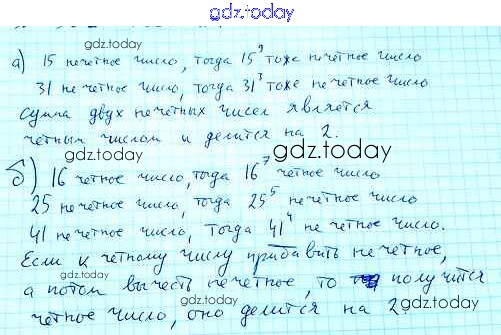 gdz.today
gdz.today
а) 15 нечетное число, тогда 15⁹ тоже нечетное число
31 нечетное число, тогда 31³ тоже нечетное число
сумма двух нечетных чисел является
четным числом и делится на 2.
gdz.today
gdz.today
б) 16 четное число, тогда 16⁷ четное число
25 нечетное число, тогда 25⁵ нечетное число
41 нечетное число, тогда 41⁴ нечетное число.
Если к четному числу прибавить нечетное,
gdz.today
а потом вычесть нечетное, то получится
gdz.today
четное число, оно делится на 2.
gdz.today